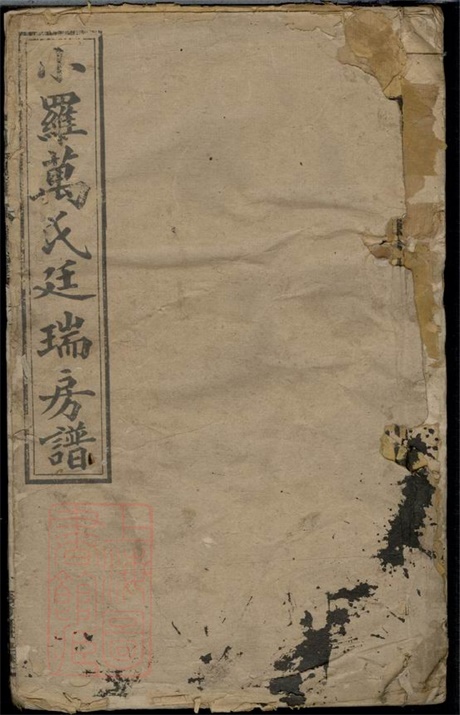 小羅萬氏廷瑞房譜